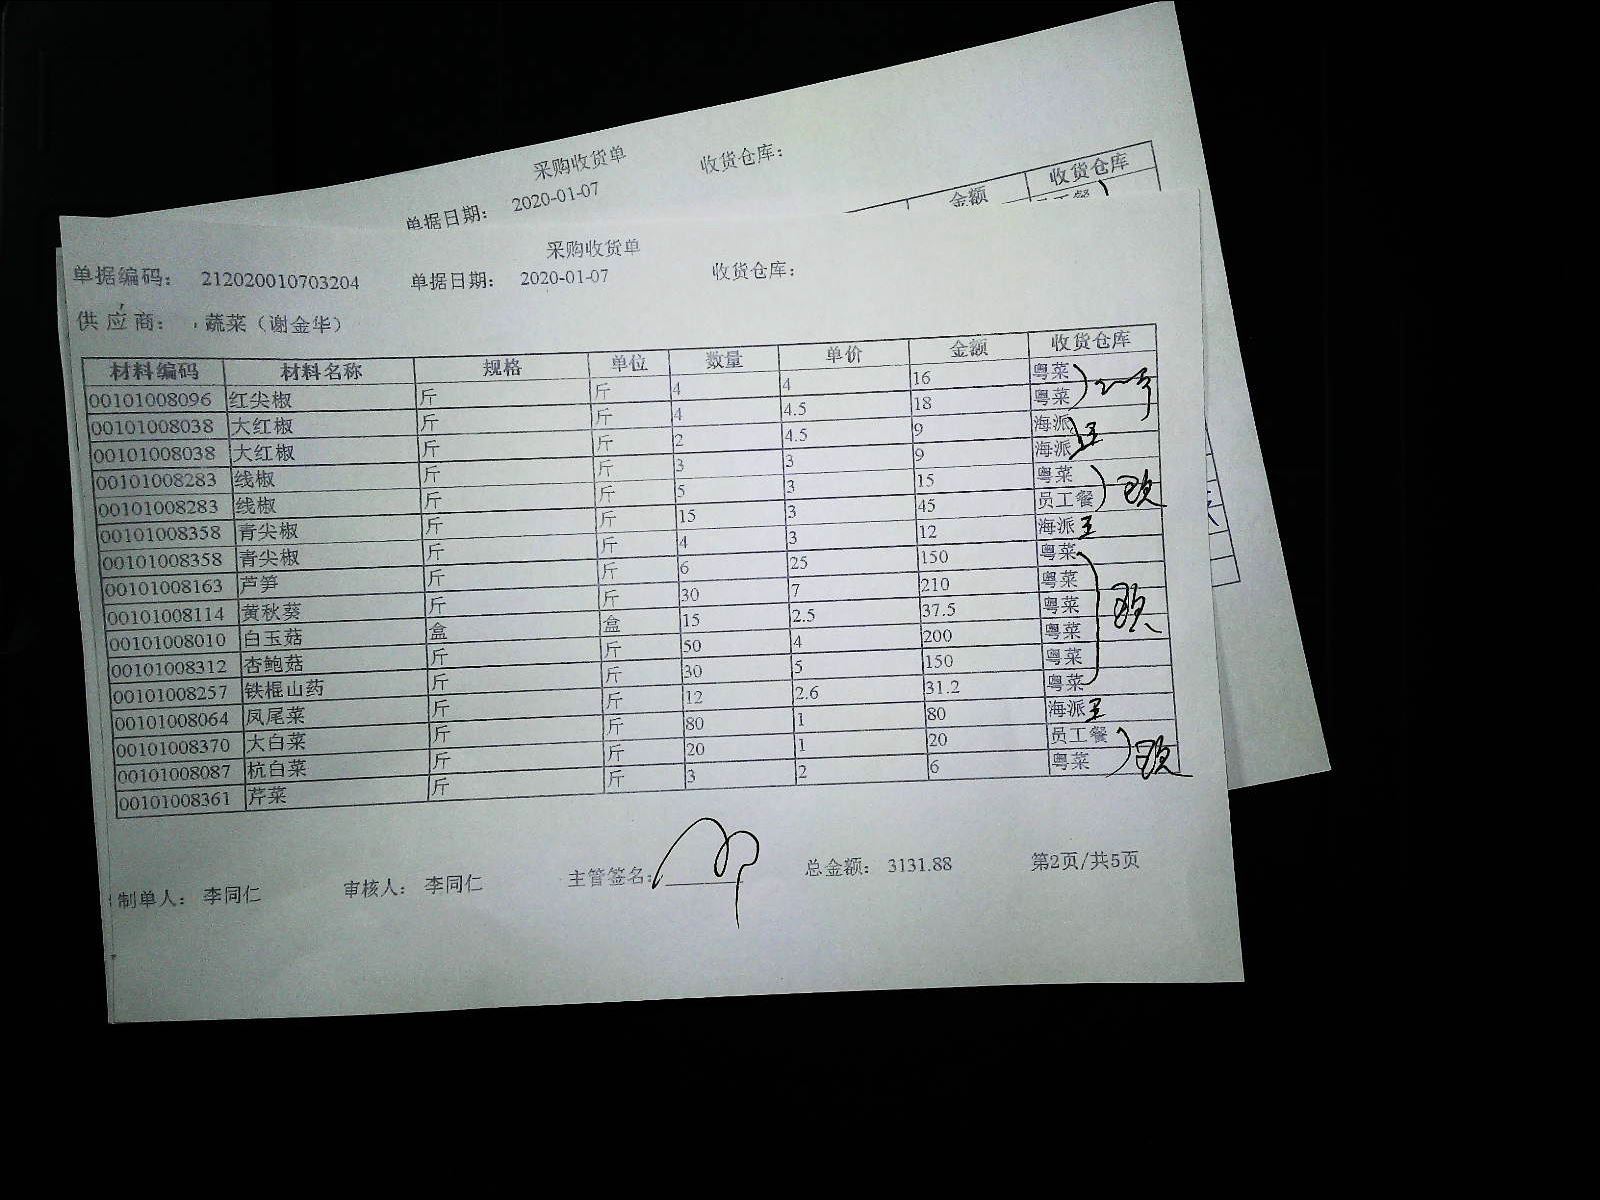 采购收货单
单据日期: 2020-01-07 收货仓库:
金额 收货仓库
采购收货单
单据编码: 212020010703204 单据日期: 2020-01-07 收货仓库:
供应商: 蔬菜（谢金华）
材料编码 材料名称 规格 单位 数量 单价 金额 收货仓库
00101008096 红尖椒 斤 斤 4 4 16 粤菜
00101008038 大红椒 斤 斤 4 4.5 18 粤菜
00101008038 大红椒 斤 斤 2 4.5 9 海派
00101008283 线椒 斤 斤 3 3 9 海派
00101008283 线椒 斤 斤 5 3 15 粤菜
00101008358 青尖椒 斤 斤 15 3 45 员工餐
00101008358 青尖椒 斤 斤 4 3 12 海派
00101008163 芦笋 斤 斤 6 25 150 粤菜
00101008114 黄秋葵 斤 斤 30 7 210 粤菜
00101008010 白玉菇 盒 盒 15 2.5 37.5 粤菜
00101008312 杏鲍菇 斤 斤 50 4 200 粤菜
00101008257 铁棍山药 斤 斤 30 5 150 粤菜
00101008064 凤尾菜 斤 斤 12 2.6 31.2 粤菜
00101008370 大白菜 斤 斤 80 1 80 海派
00101008087 杭白菜 斤 斤 20 1 20 员工餐
00101008361 芹菜 斤 斤 3 2 6 粤菜
制单人: 李同仁 审核人: 李同仁 主管签名: 总金额: 3131.88 第2页/共5页